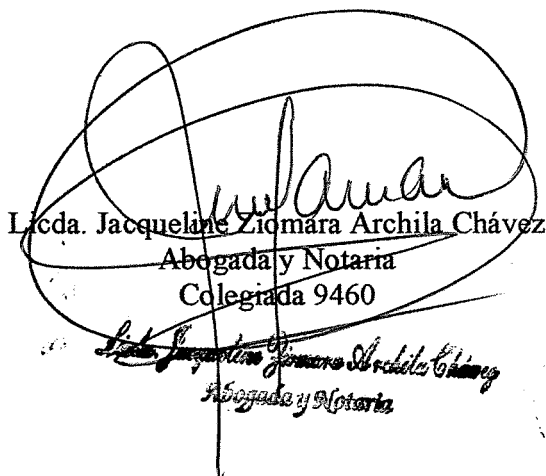 Licda. Jacqueline Ziomara Archila Chávez
Abogada y Notaria
Colegiada 9460
Licda. Jacqueline Ziomara Archila Chávez
Abogada y Notaria